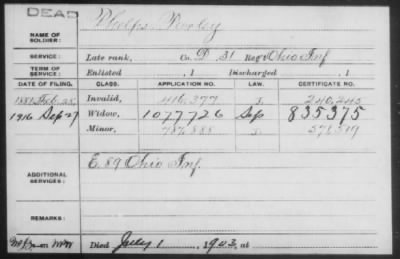 DEAD
NAME OF SOLDIER: Phelps
SERVICE: Late rank, Co. D 31 Reg't Ohio Inf
TERM OF SERVICE: Enlisted , 1 Discharged , 1
DATE OF FILING. CLASS. APPLICATION NO. LAW. CERTIFICATE NO.
Invalid, 416,377
1916 Sep 27 Widow, 1077726 Sep 835375
Minor,
ADDITIONAL SERVICES: E. 89 Ohio Inf.
REMARKS:
Died July 1, 1903, at